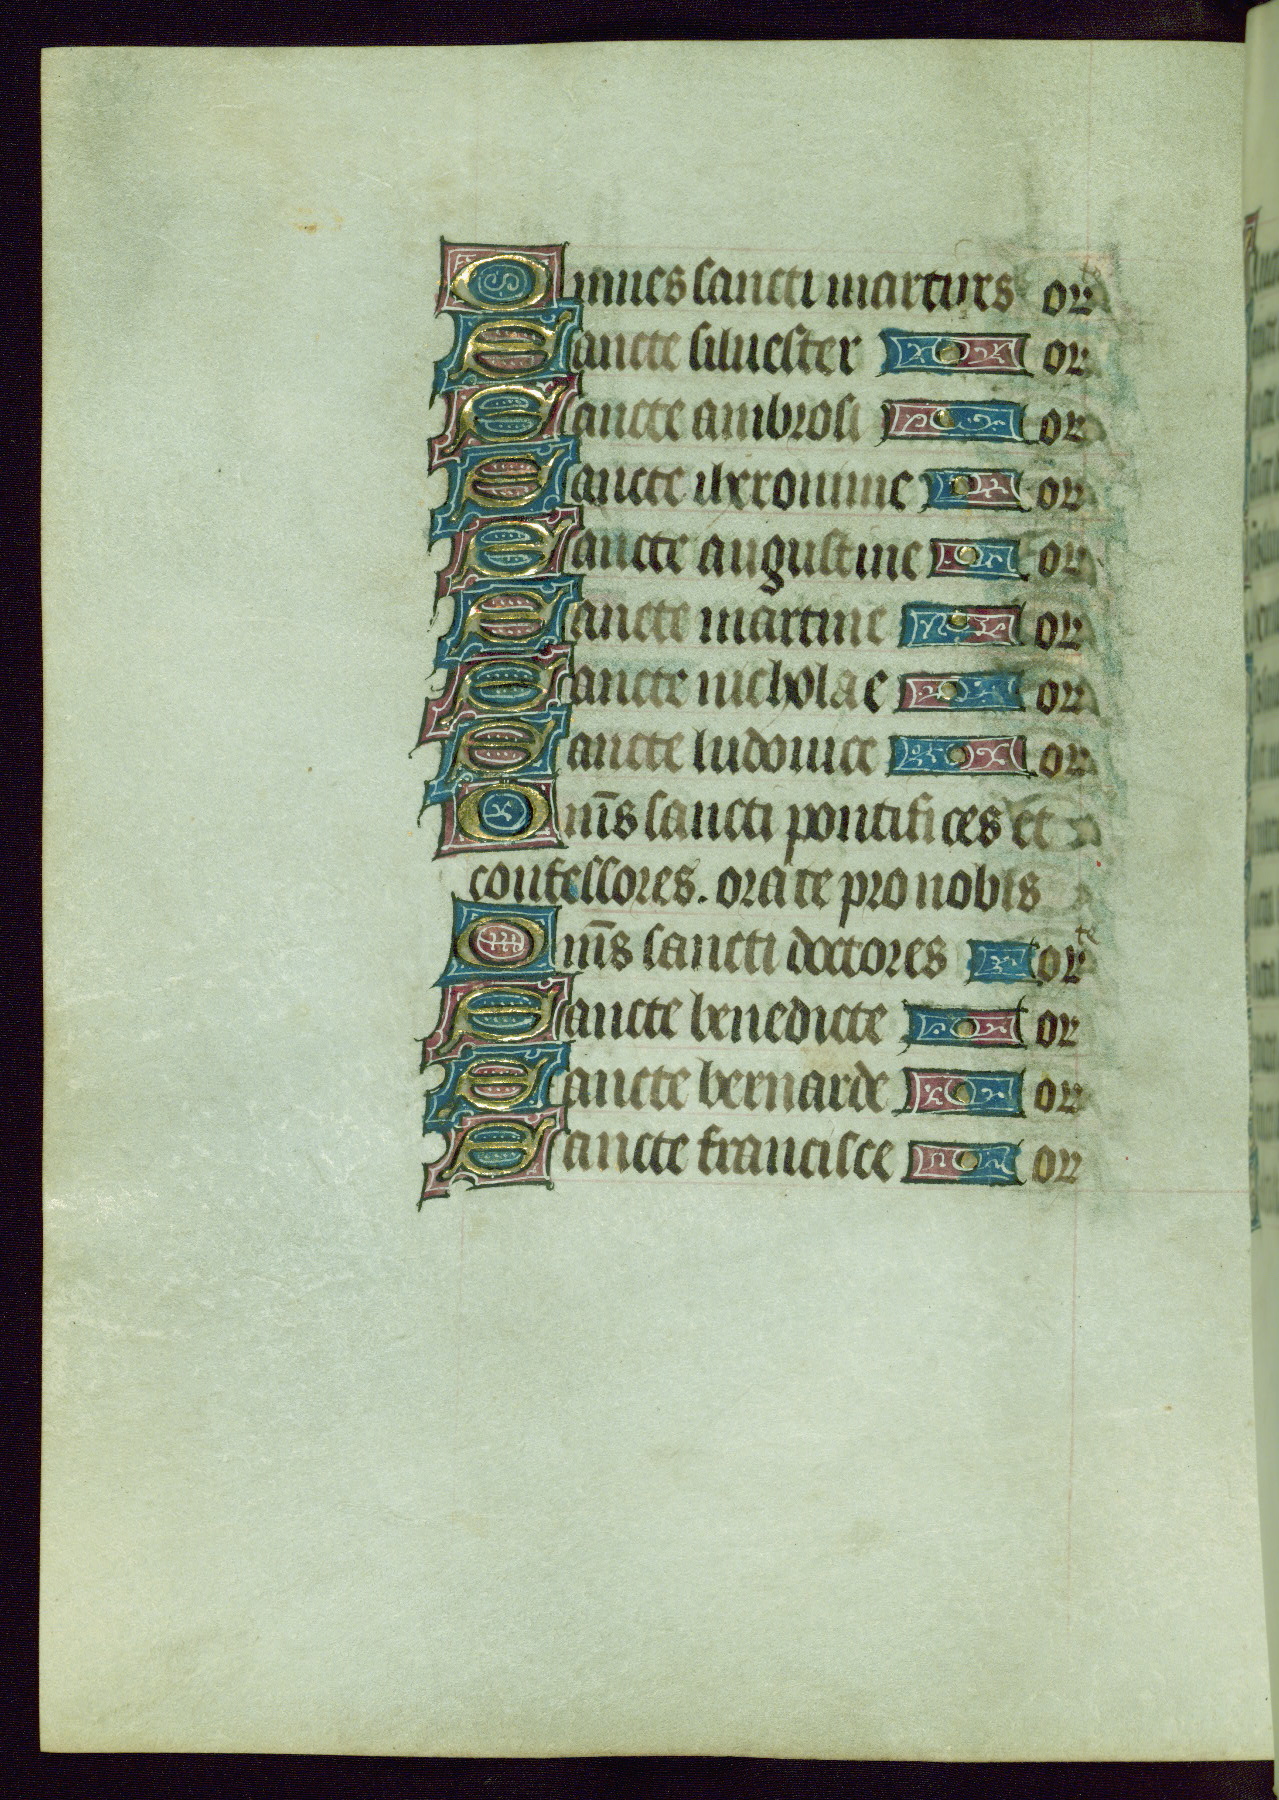 Omnes sancti martyrs orᵗᵉ
Sancte silvester or
Sancte ambrosi or
Sancte iheronime or
Sancte augustine or
Sancte martine or
Sancte nicholae or
Sancte ludovice or
Om̅s sancti pontifices et
confessores. orate pro nobis
Om̅s sancti doctores orᵗᵉ
Sancte benedicte or
Sancte bernarde or
Sancte francisce or